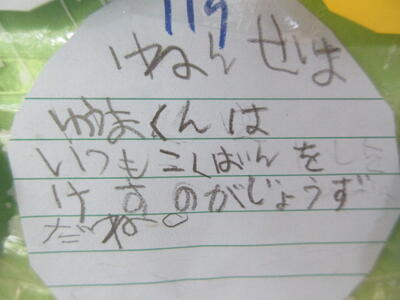 119
ゆうまくんは
いつもこくばんを
けすのがじょうず
だね。